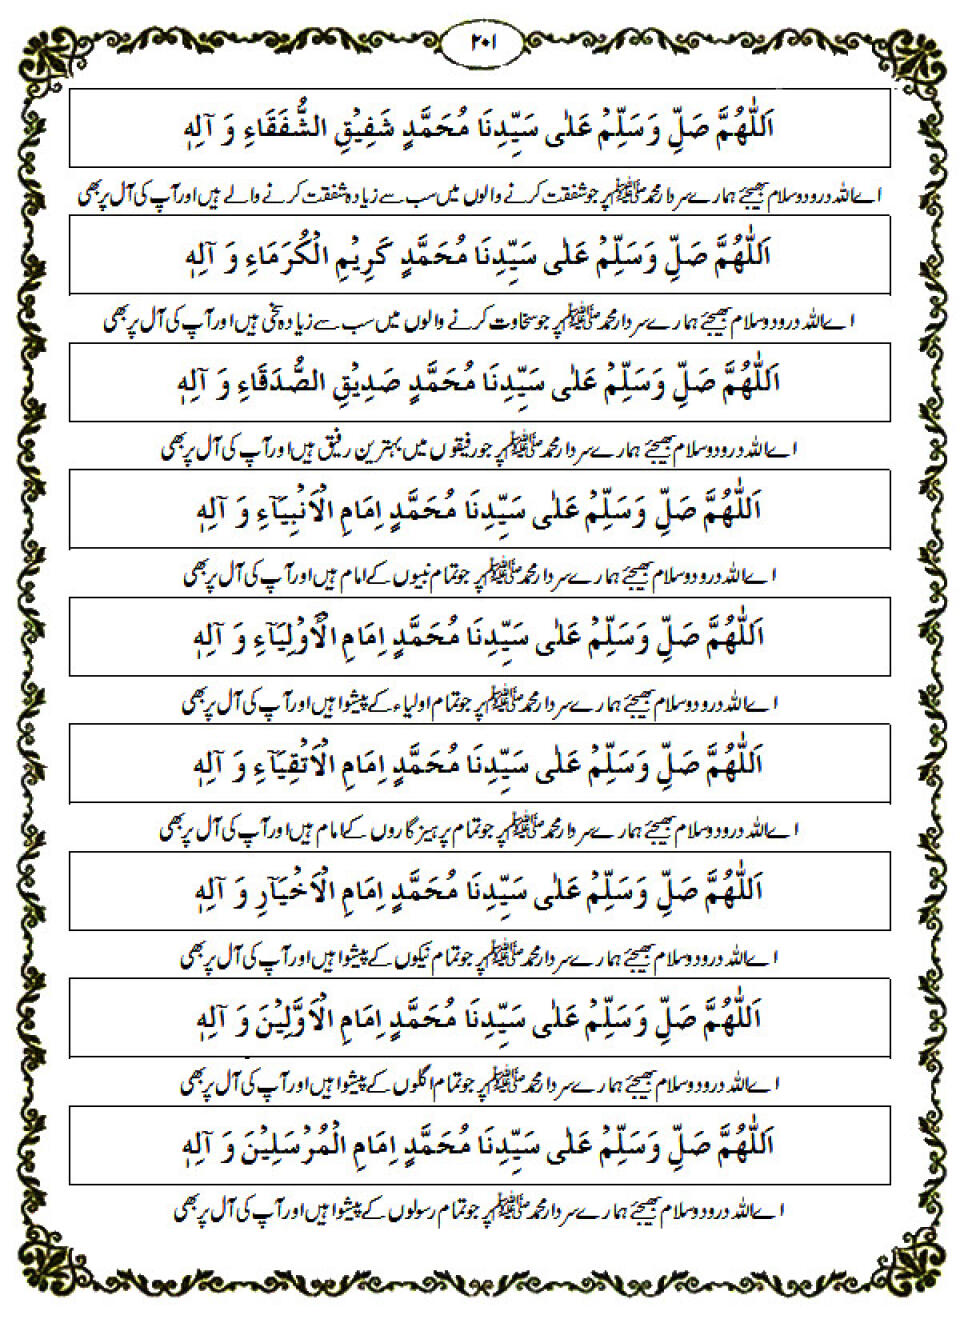 ۲۰۱
اَللّٰهُمَّ صَلِّ وَسَلِّمْ عَلٰى سَيِّدِنَا مُحَمَّدٍ شَفِيْقِ الشُّفَقَاءِ وَ آلِهٖ
اے اللہ درود و سلام بھیجئے ہمارے سردار محمد ﷺ پر جو شفقت کرنے والوں میں سب سے زیادہ شفقت کرنے والے ہیں اور آپ کی آل پر بھی
اَللّٰهُمَّ صَلِّ وَسَلِّمْ عَلٰى سَيِّدِنَا مُحَمَّدٍ كَرِيْمِ الْكُرَمَاءِ وَ آلِهٖ
اے اللہ درود و سلام بھیجئے ہمارے سردار محمد ﷺ پر جو سخاوت کرنے والوں میں سب سے زیادہ سخی ہیں اور آپ کی آل پر بھی
اَللّٰهُمَّ صَلِّ وَسَلِّمْ عَلٰى سَيِّدِنَا مُحَمَّدٍ صَدِيْقِ الصُّدَقَاءِ وَ آلِهٖ
اے اللہ درود و سلام بھیجئے ہمارے سردار محمد ﷺ پر جو رفیقوں میں بہترین رفیق ہیں اور آپ کی آل پر بھی
اَللّٰهُمَّ صَلِّ وَسَلِّمْ عَلٰى سَيِّدِنَا مُحَمَّدٍ اِمَامِ الْاَنْبِيَآءِ وَ آلِهٖ
اے اللہ درود و سلام بھیجئے ہمارے سردار محمد ﷺ پر جو تمام نبیوں کے امام ہیں اور آپ کی آل پر بھی
اَللّٰهُمَّ صَلِّ وَسَلِّمْ عَلٰى سَيِّدِنَا مُحَمَّدٍ اِمَامِ الْاَوْلِيَآءِ وَ آلِهٖ
اے اللہ درود و سلام بھیجئے ہمارے سردار محمد ﷺ پر جو تمام اولیاء کے پیشوا ہیں اور آپ کی آل پر بھی
اَللّٰهُمَّ صَلِّ وَسَلِّمْ عَلٰى سَيِّدِنَا مُحَمَّدٍ اِمَامِ الْاَتْقِيَآءِ وَ آلِهٖ
اے اللہ درود و سلام بھیجئے ہمارے سردار محمد ﷺ پر جو تمام پرہیز گاروں کے امام ہیں اور آپ کی آل پر بھی
اَللّٰهُمَّ صَلِّ وَسَلِّمْ عَلٰى سَيِّدِنَا مُحَمَّدٍ اِمَامِ الْاَخْيَآرِ وَ آلِهٖ
اے اللہ درود و سلام بھیجئے ہمارے سردار محمد ﷺ پر جو تمام نیکوں کے پیشوا ہیں اور آپ کی آل پر بھی
اَللّٰهُمَّ صَلِّ وَسَلِّمْ عَلٰى سَيِّدِنَا مُحَمَّدٍ اِمَامِ الْاَوَّلِيْنَ وَ آلِهٖ
اے اللہ درود و سلام بھیجئے ہمارے سردار محمد ﷺ پر جو تمام اگلوں کے پیشوا ہیں اور آپ کی آل پر بھی
اَللّٰهُمَّ صَلِّ وَسَلِّمْ عَلٰى سَيِّدِنَا مُحَمَّدٍ اِمَامِ الْمُرْسَلِيْنَ وَ آلِهٖ
اے اللہ درود و سلام بھیجئے ہمارے سردار محمد ﷺ پر جو تمام رسولوں کے پیشوا ہیں اور آپ کی آل پر بھی